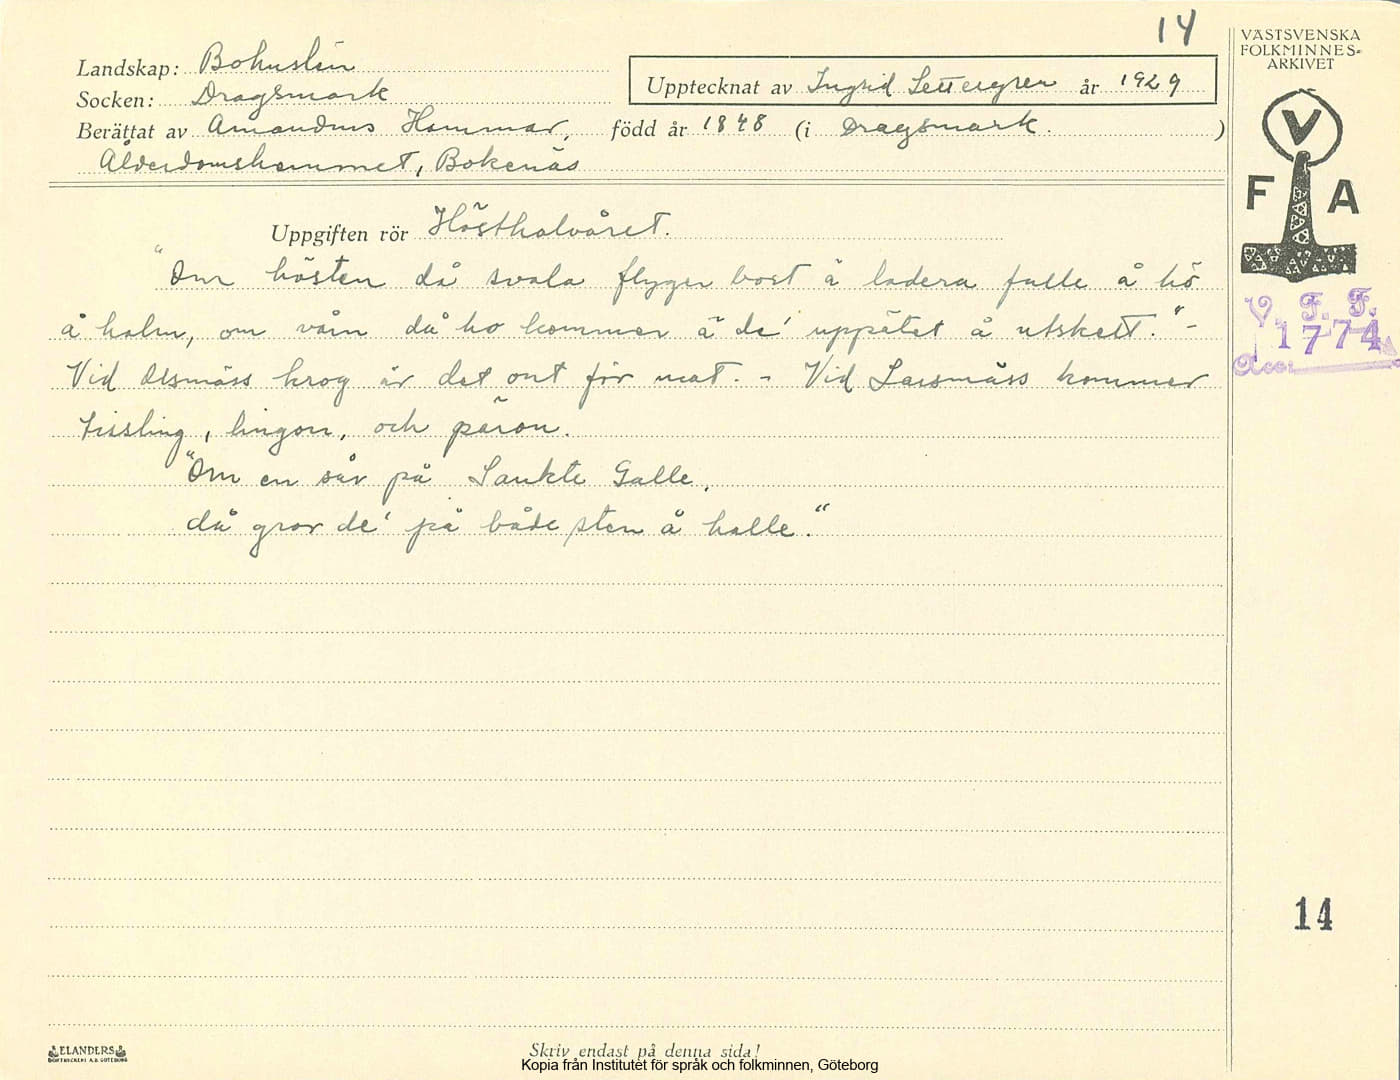 14
VÄSTSVENSKA
FOLKMINNES-
ARKIVET
Landskap: Bohuslän
Upptecknat av Ingrid Settergren år 1929
Socken: Dragsmark
Berättat av Amandus Hammar, född år 1848 (i Dragsmark.)
Ålderdomshemmet, Bokenäs
V
F A
Uppgiften rör Hösthalvåret.
"Om hösten då svala flyger bort ä ladera fulle å hö
å halm, om vårn då ho kommer ä de' uppätet å utskett." -
Vid Olsmäss krog är det ont för mat. - Vid Larsmäss kommer
tissling, lingon, och päron.
"Om en sår på Sankte Galle,
då gror de' på både sten å halle."
V. F. F.
1774
Acc.
14
ELANDERS
BOKTRYCKERI A.B. GÖTEBORG
Skriv endast på denna sida!
Kopia från Institutet för språk och folkminnen, Göteborg